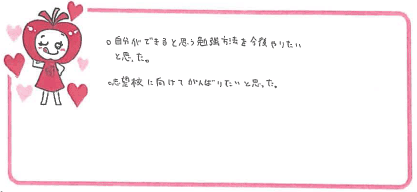 ○自分ができると思う勉強方法を今後やりたい
と思った。
○志望校に向けてがんばりたいと思った。